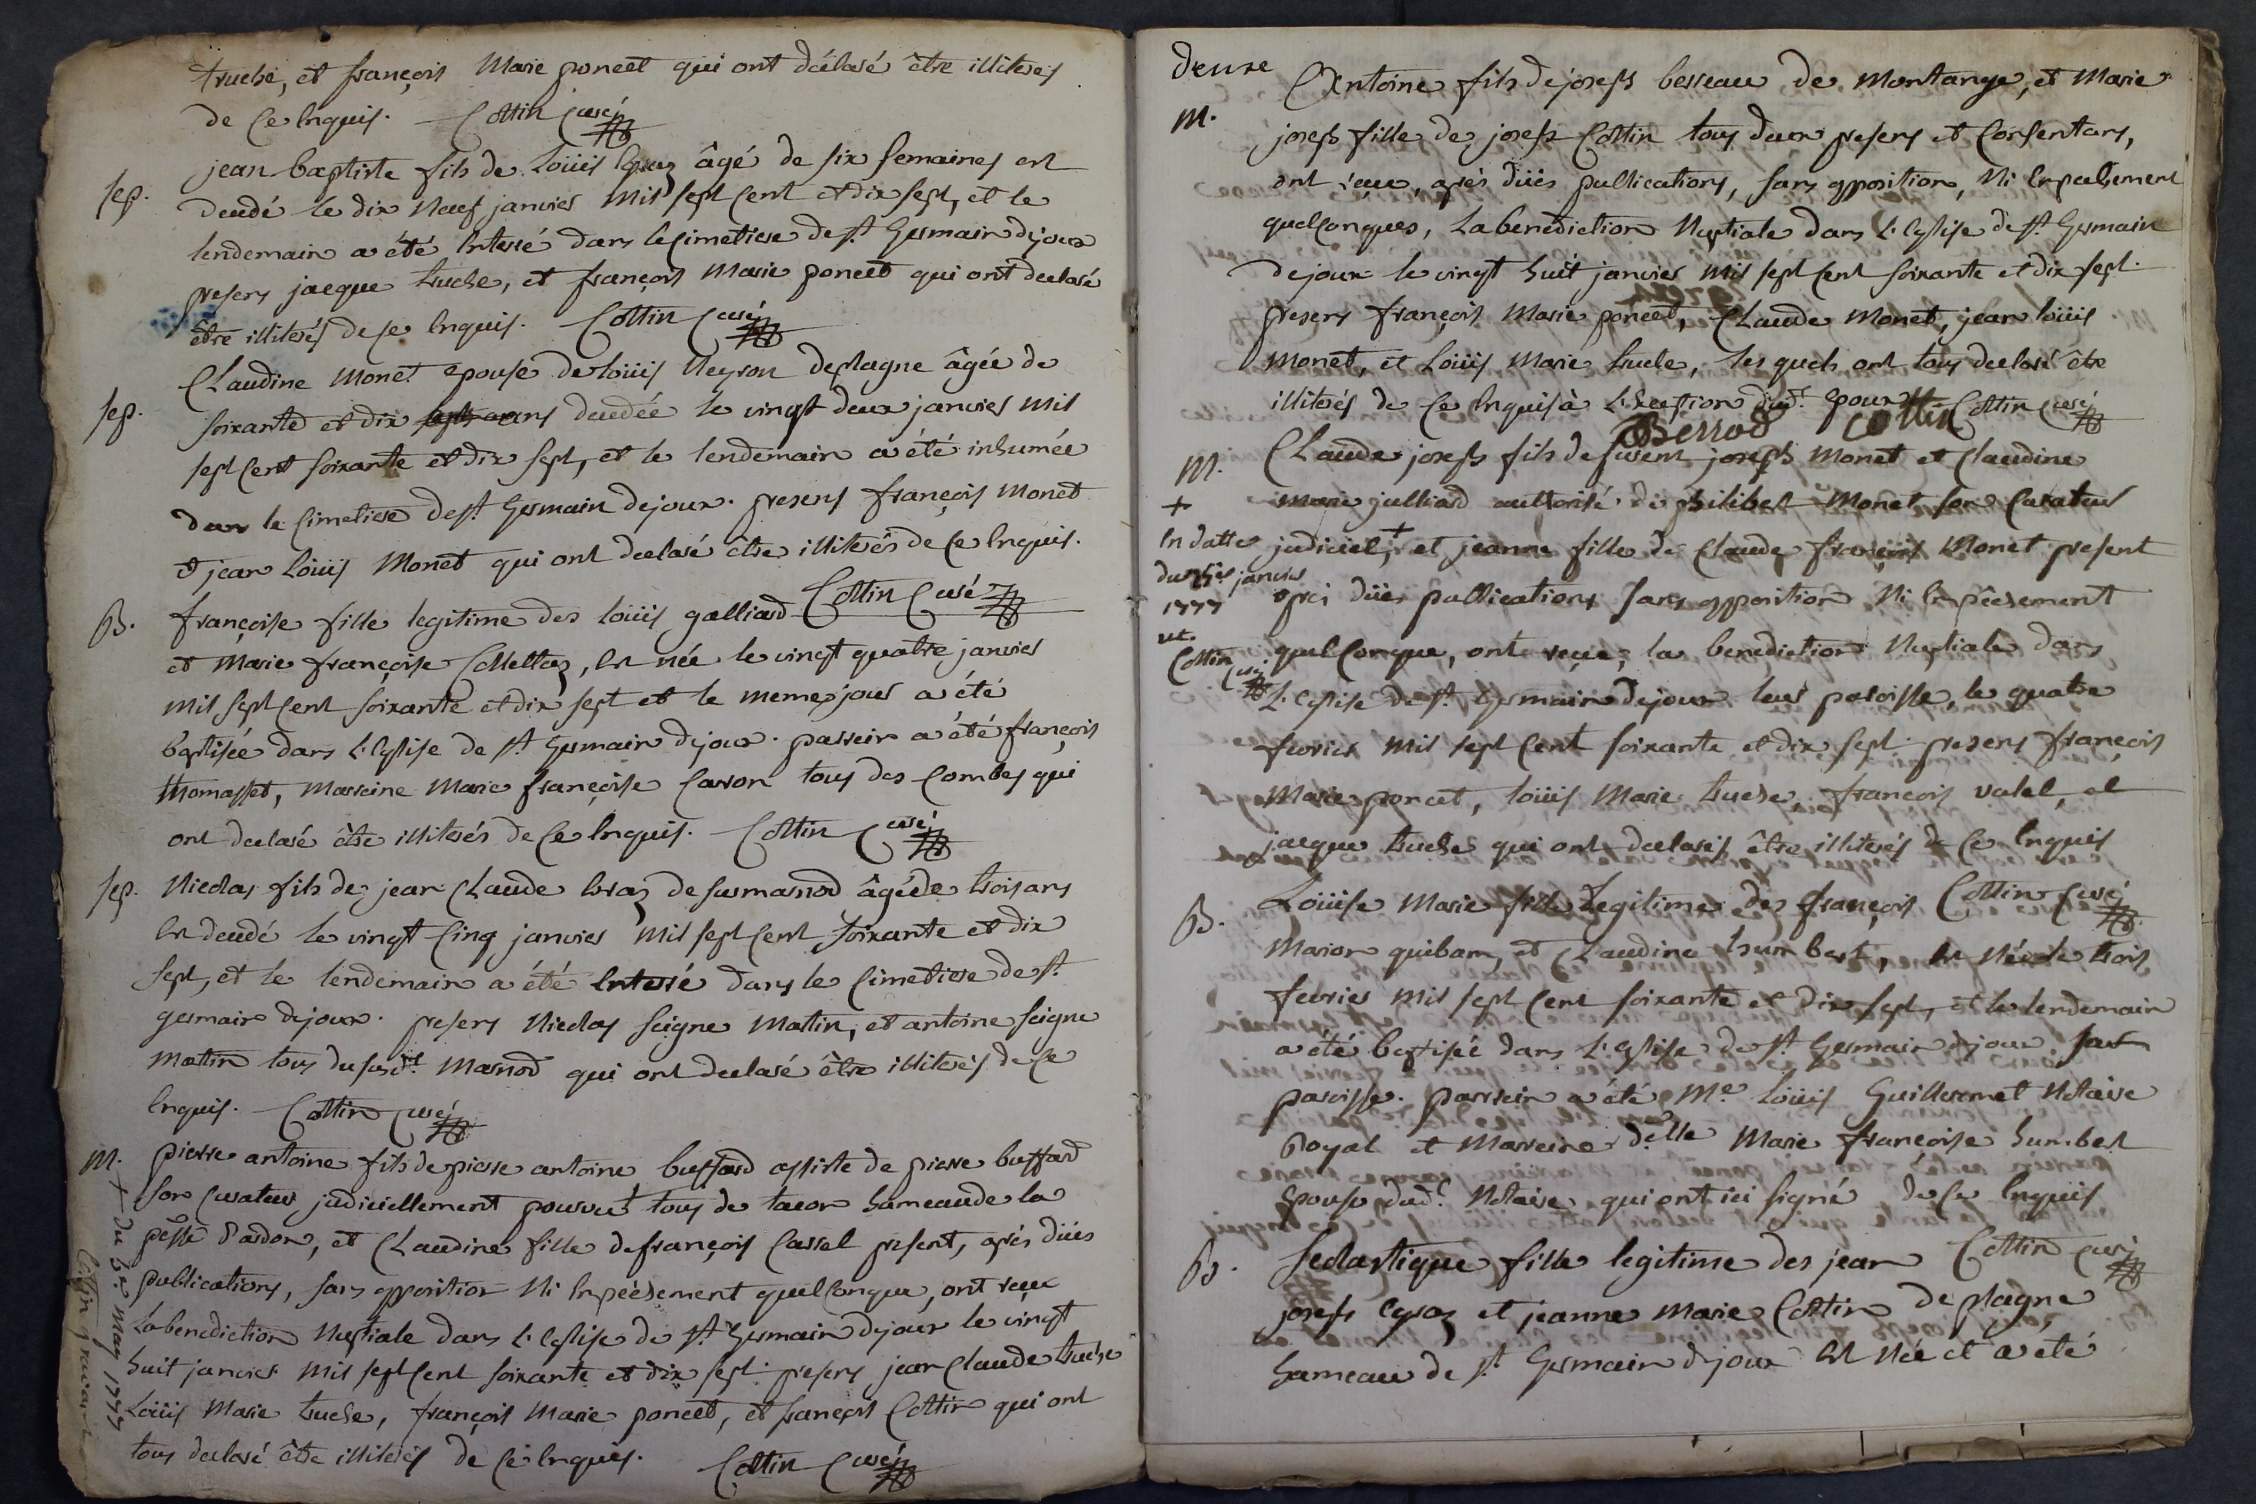 truche, et françois Marie poncet qui ont déclaré être illiterés
de ce Enquis. Cottin Curé
Sep.
jean baptiste fils de Loüis âgé de six semaines est
decedé le dix neuf janvier mil sept cent et dix sept, et le
lendemain a été Enterré dans le Cimetiere de St. Germain dejoux
presens jacque truche, et françois Marie poncet qui ont declaré
être illiterés de ce Enquis. Cottin Curé
Sep.
Claudine Monet epouse de Loüis Neyron deplagne âgée de
soixante et dix ans decedée le vingt deux janvier mil
sept cent soixante et dix sept, et le lendemain a été inhumée
dans le Cimetiere de St. Germain dejoux. presens françois Monet
et jean Loüis Monet qui ont declaré être illiterés de ce Enquis.
Cottin Curé
B.
françoise fille legitime des Loüis galliard
et Marie françoise Collettaz, Est née le vingt quatre janvier
mil sept cent soixante et dix sept et le meme jour a été
baptisée dans L'Eglise de St. Germain dejoux. parrein a été françois
thomasset, Marreine Marie françoise Carron tous des Combes qui
ont declaré être illiterés de Ce Enquis. Cottin Curé
Sep.
Nicolas fils de jean Claude de surmarnod âgé de trois ans
Est decedé le vingt Cinq janvier mil sept cent soixante et dix
sept, et le lendemain a été Enterré dans le Cimetiere de St.
germain dejoux. presens Nicolas seigne Martin, et antoine seigne
Martin tous du susdt. Marnod qui ont declaré être illiterés de ce
Enquis. Cottin Curé
M.
pierre antoine fils de pierre antoine buffard assisté de pierre buffard
son Curateur judiciellement pourvu + tous de tacon hameau de la
pesse d'ardon, et Claudine fille de françois Cassal present, après dües
publications, sans opposition Ni Empéchement quelconque, ont reçu
La benediction Nuptiale dans L'Eglise de St. Germain dejoux le vingt
huit janvier mil sept cent soixante et dix sept. presens jean Claude truche
Loüis Marie truche, françois Marie poncet, et françois Cottin qui ont
tous declaré être illiterés de Ce Enquis. Cottin Curé
+ du may 1777
Cottin
deuxe
M.
Antoine fils de joseph berrod de Montange, et Marie
joseph fille de joseph Cottin tous deux presens et Consentans,
ont reçu, après dües publications, sans opposition, Ni Empechement
quelconques, La benediction Nuptiale dans L'Eglise de St. Germain
dejoux le vingt huit janvier mil sept cent soixante et dix sept.
presens françois Marie poncet, Claude Monet, jean loüis
Monet, et Loüis Marie truche, les quels ont tous declaré être
illiterés de Ce Enquis à L'Exception dudt. epoux
Berrod Cottin Cottin Curé
M.
Claude joseph fils de joseph Monet et Claudine
Marie julliard authorisé de philibert Monet son Curateur
judiciel, + et jeanne fille de Claude françois Monet present
après dües publications sans opposition Ni Empêchement
quelconque, ont reçue, la benediction Nuptiale dans
L'Eglise de St. Germain dejoux leur paroisse, le quatre
fevrier mil sept cent soixante et dix sept. presens françois
Marie poncet, loüis Marie truche, francois et
jacque truche qui ont declarés être illiterés de Ce Enquis
Cottin Curé
+
En datte
du janvier
1777
Cottin Curé
B.
Loüise Marie fille Legitime des françois
et Claudine humbert, Est Née le trois
fevrier mil sept cent soixante et dix sept, et le lendemain
a été baptisée dans L'Eglise de St. Germain dejoux sa
paroisse. parrein a été Me. Loüis Guillermet Notaire
Royal et Marreine delle Marie françoise humbert
Epouse dudt. Notaire qui ont ici signé de Ce Enquis
Cottin Curé
B.
Scolastique fille legitime des jean
joseph et jeanne Marie Cottin de plagne
hameau de St. Germain dejoux Est Née et a eté